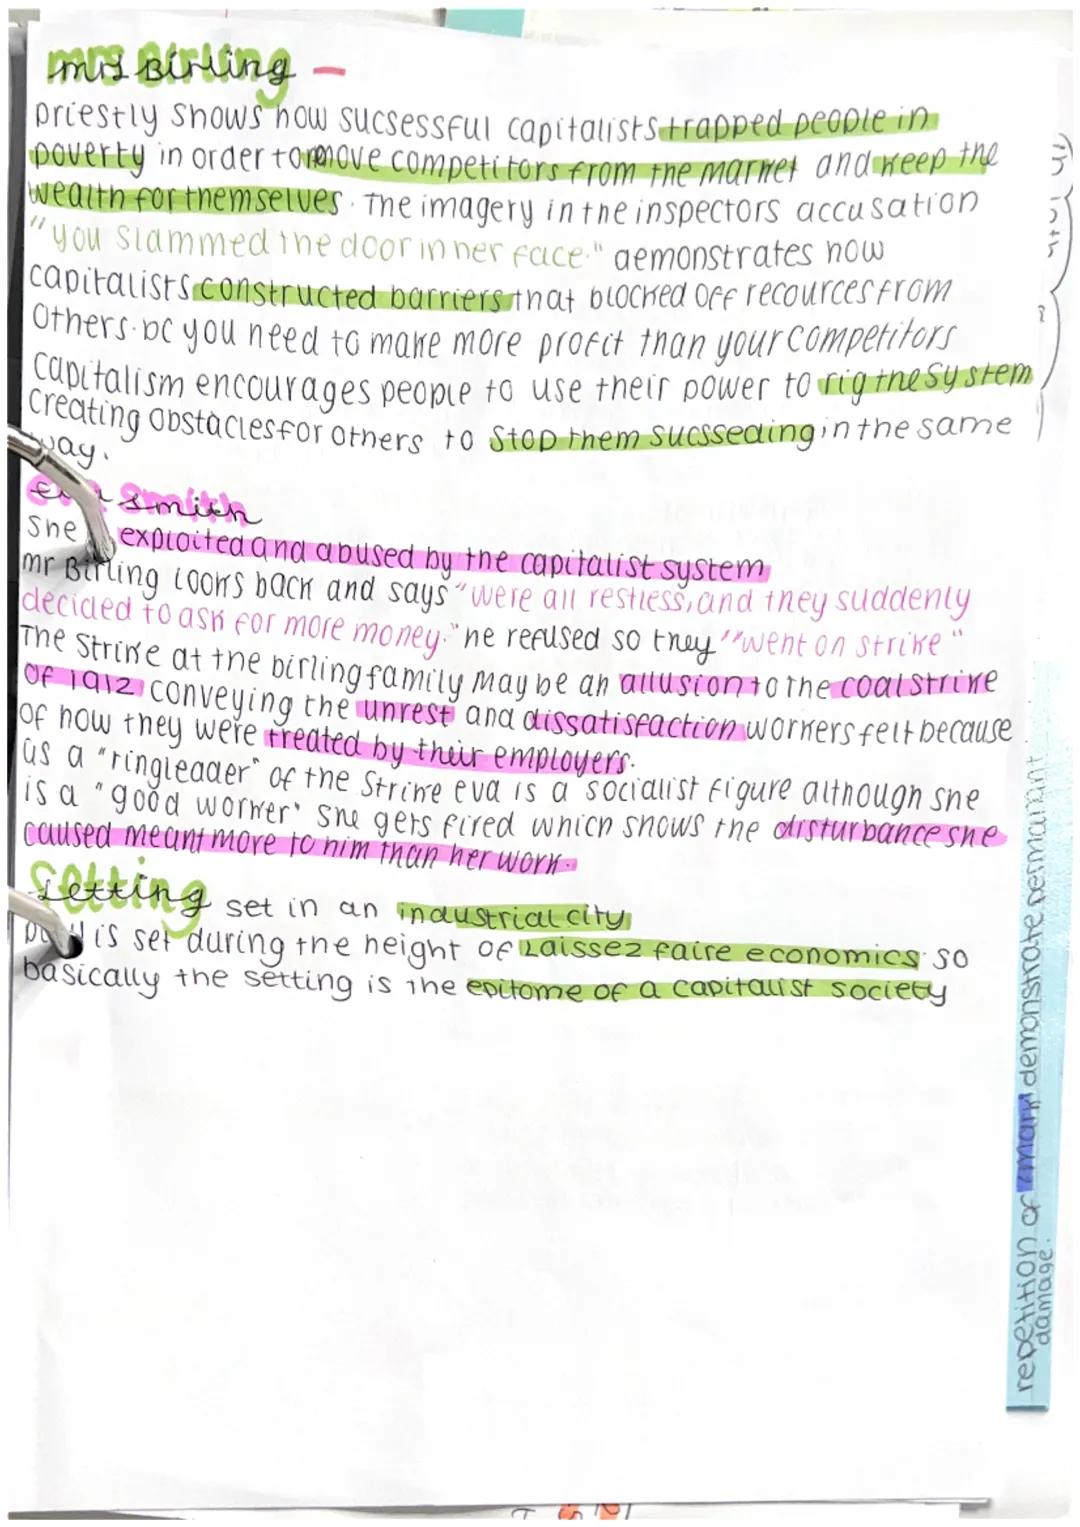 mrs Birling –
priestly shows how sucsessful capitalists trapped people in
poverty in order to move competitors from the market and keep the
wealth for themselves. The imagery in the inspectors accusation
"you slammed the door in her face." demonstrates how
capitalists constructed barriers that blocked off recources from
others. bc you need to make more profit than your competitors
capitalism encourages people to use their power to rig the system
creating obstacles for others to stop them sucsseding in the same
way.
eva smith
She exploited and abused by the capitalist system
mr Birling looks back and says "were all restless, and they suddenly
decided to ask for more money." he refused so they "went on strike"
The strike at the birling family may be an allusion to the coal strike
of 1912 conveying the unrest and dissatisfaction workers felt because
of how they were treated by their employers.
as a "ringleader" of the strike eva is a socialist figure although she
is a "good worker" she gets fired which shows the disturbance she
caused meant more to him than her work.
Setting set in an industrial city
is set during the height of Laissez faire economics so
basically the setting is the epitome of a capitalist society
repetition of "mark" demonstrate permanant
damage.